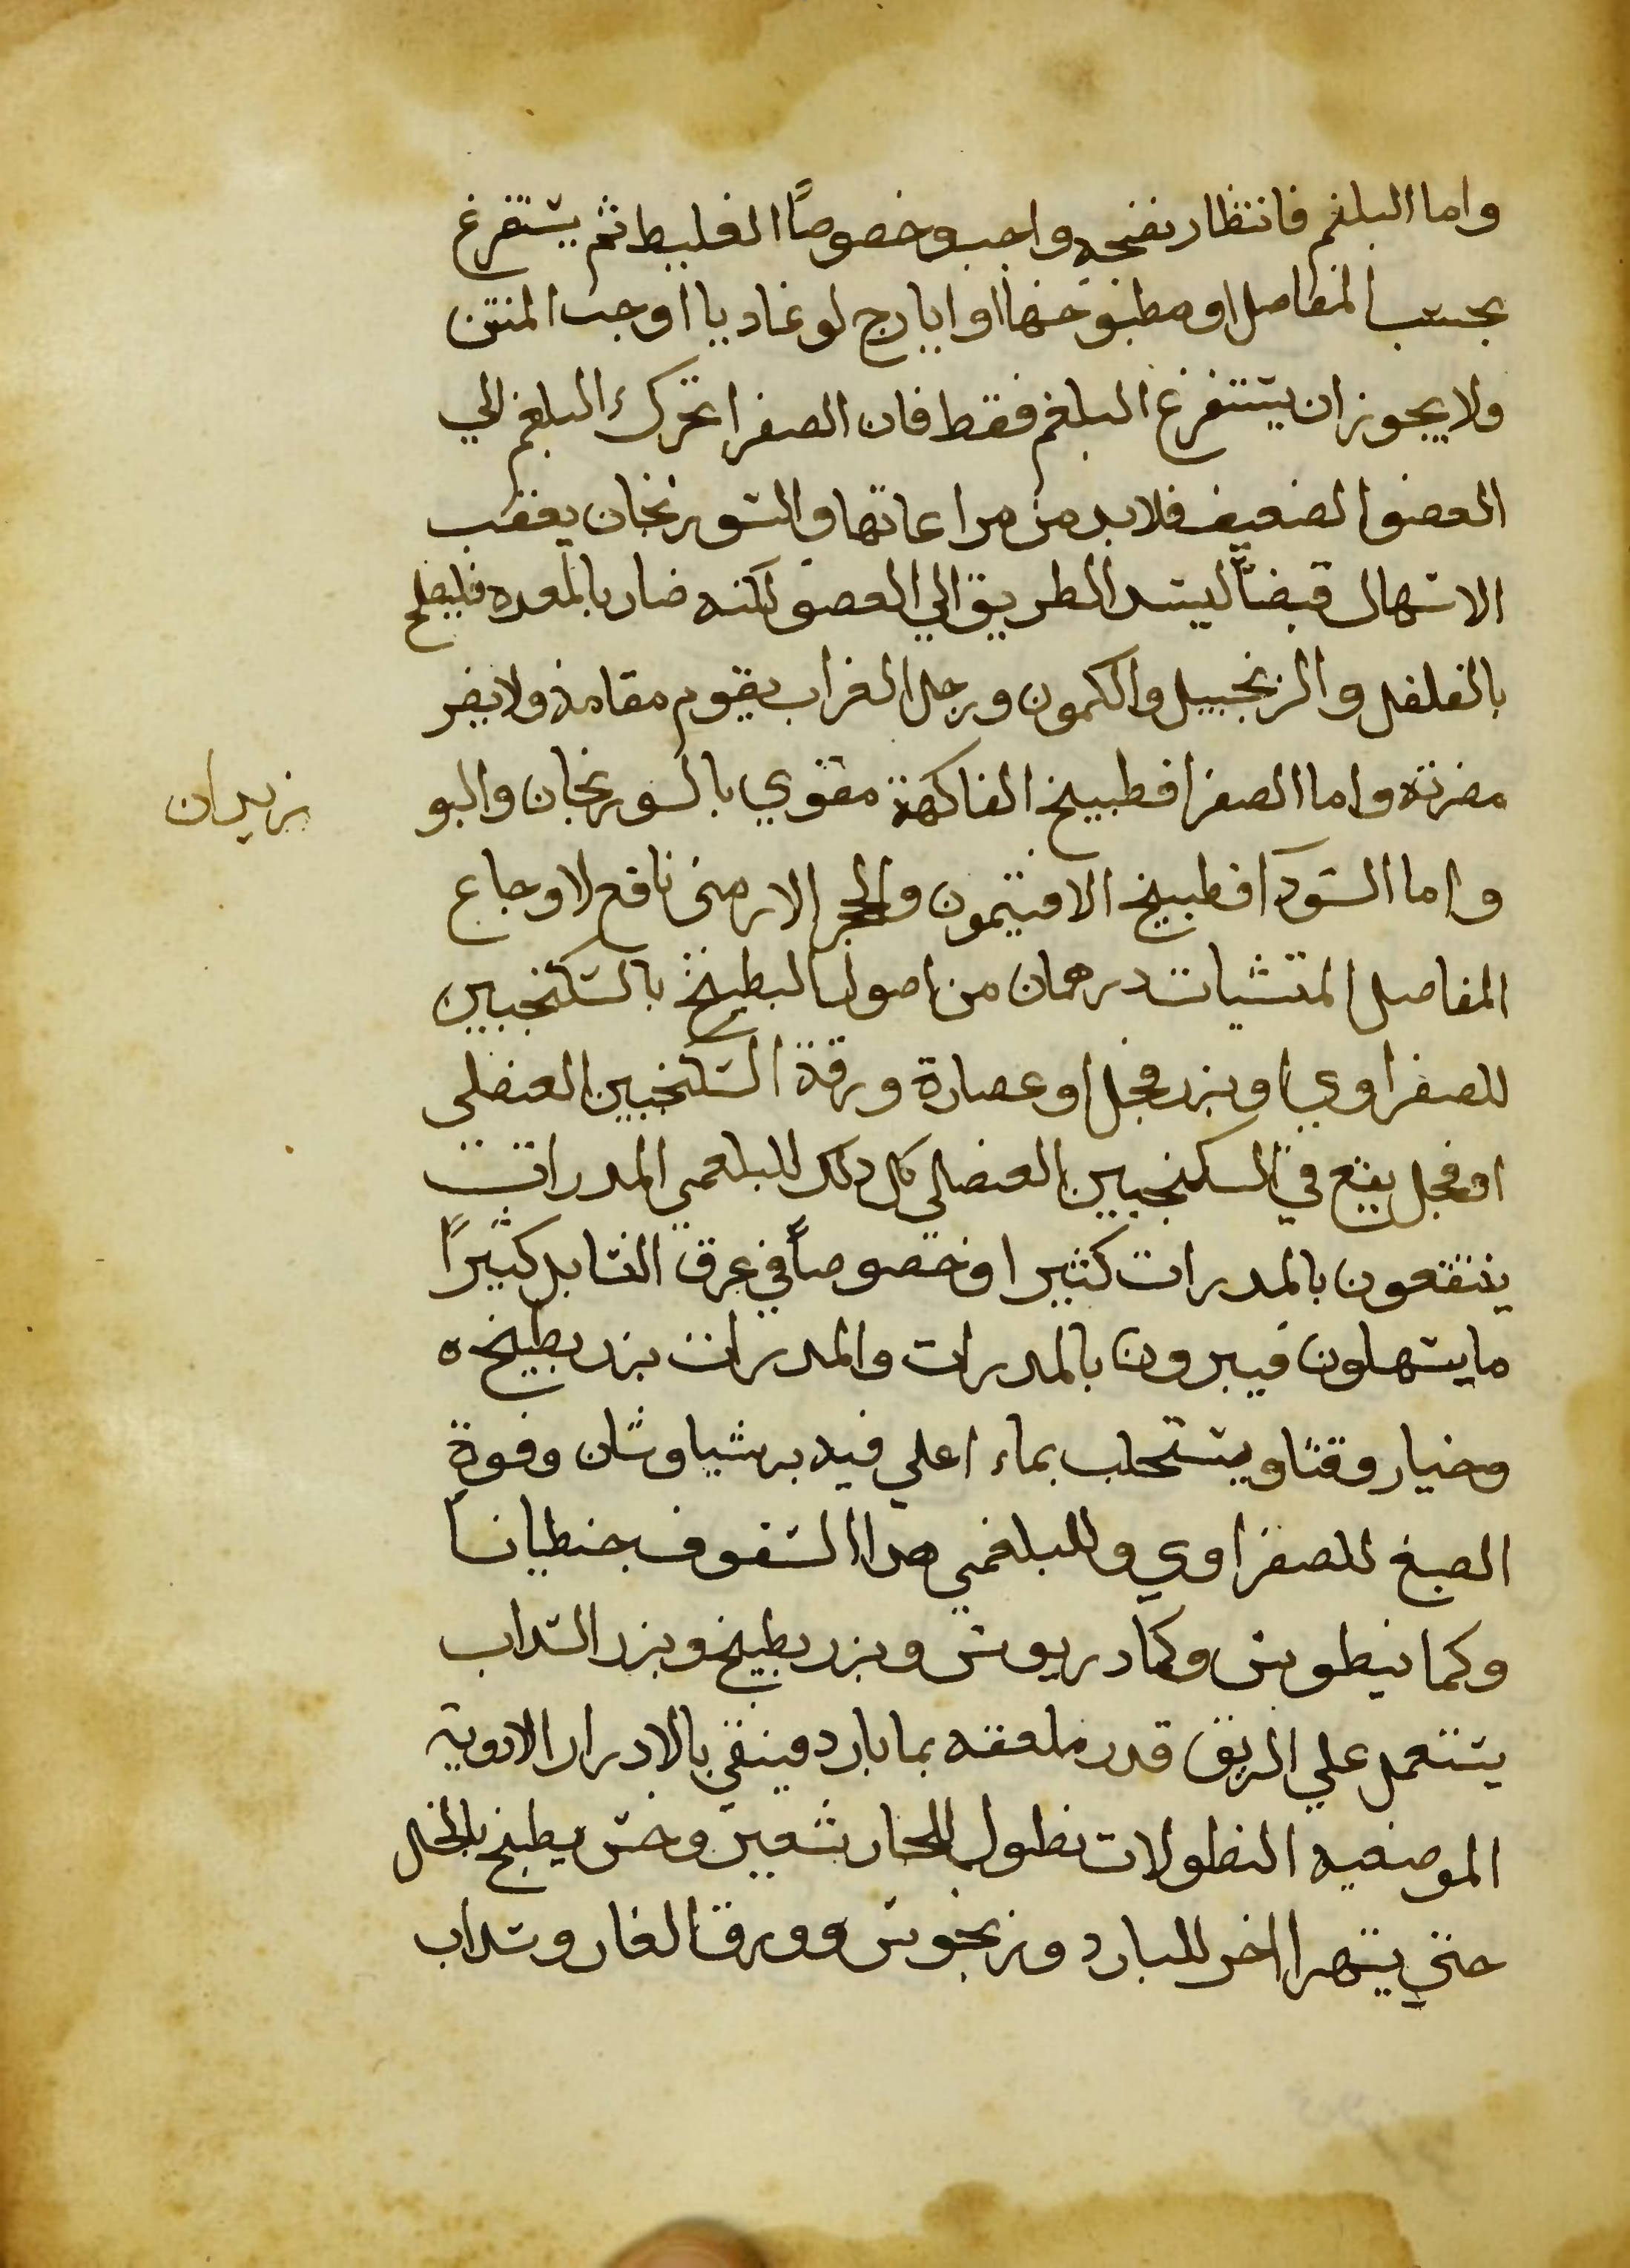 واما البلغم فانتظار نضجه واجب وخصوصاً الغليظ ثم يستفرغ
بحسب المفاصل او مطبوخها او ايارج لوغاديا او حب المنتن
ولا يجوز ان يستفرغ البلغم فقط فان الصفرا تحرك البلغم الي
العضو الضعيف فلا بد من مراعاتها والسورنجان يعقب
الاسهال قبضاً ليسد الطريق الي العضو لكنه ضار بالمعده فليصلح
بالفلفل والزنجبيل والكمون ورجل الغراب يقوم مقامه ولا يضر
مضرته واما الصفرا فطبيخ الفاكهة مقوي بالسورنجان والبو
زيدان
واما السودا فطبيخ الافتيمون والحجر الارمني نافع لاوجاع
المفاصل المقيئات درهمان من اصول البطيخ بالسكنجبين
للصفراوي او بزر فجل او عصارة ورقة السكنجبين العنصلي
او فجل يقع في السكنجبين العنصلي كل ذلك للبلغمي المدرات
ينتفعون بالمدرات كثيرا وخصوصاً في عرق النسا بل كثيراً
ما يسهلون فيبرون بالمدرات والمدرات بزر بطيخ ه
وخيار وقثا ويستحلب بماء اغلي فيه برشياوشان وفوة
الصبغ للصفراوي وللبلغمي هذا السفوف جنطيانا
وكمانيطوس وكمادريوس وبزر بطيخ وبزر السداب
يستعمل علي الريق قدر ملعقه بما بارد فينقي بالادرار الادوية
الموضعيه النطولات نطول للحار شعير وخس يطبخ بالخل
حتي يتهرا اخر للبارد مرزنجوش وورق الغار وسداب